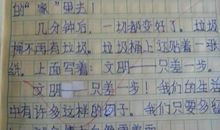 的“家”里去！
几分钟后，一切都变好了。垃圾
桶不再有垃圾。垃圾桶上还贴着一张
纸。上面写着：文明 只差一步。
文明 只差一步！我们的生活
中有许多这样的例子。我们只要多